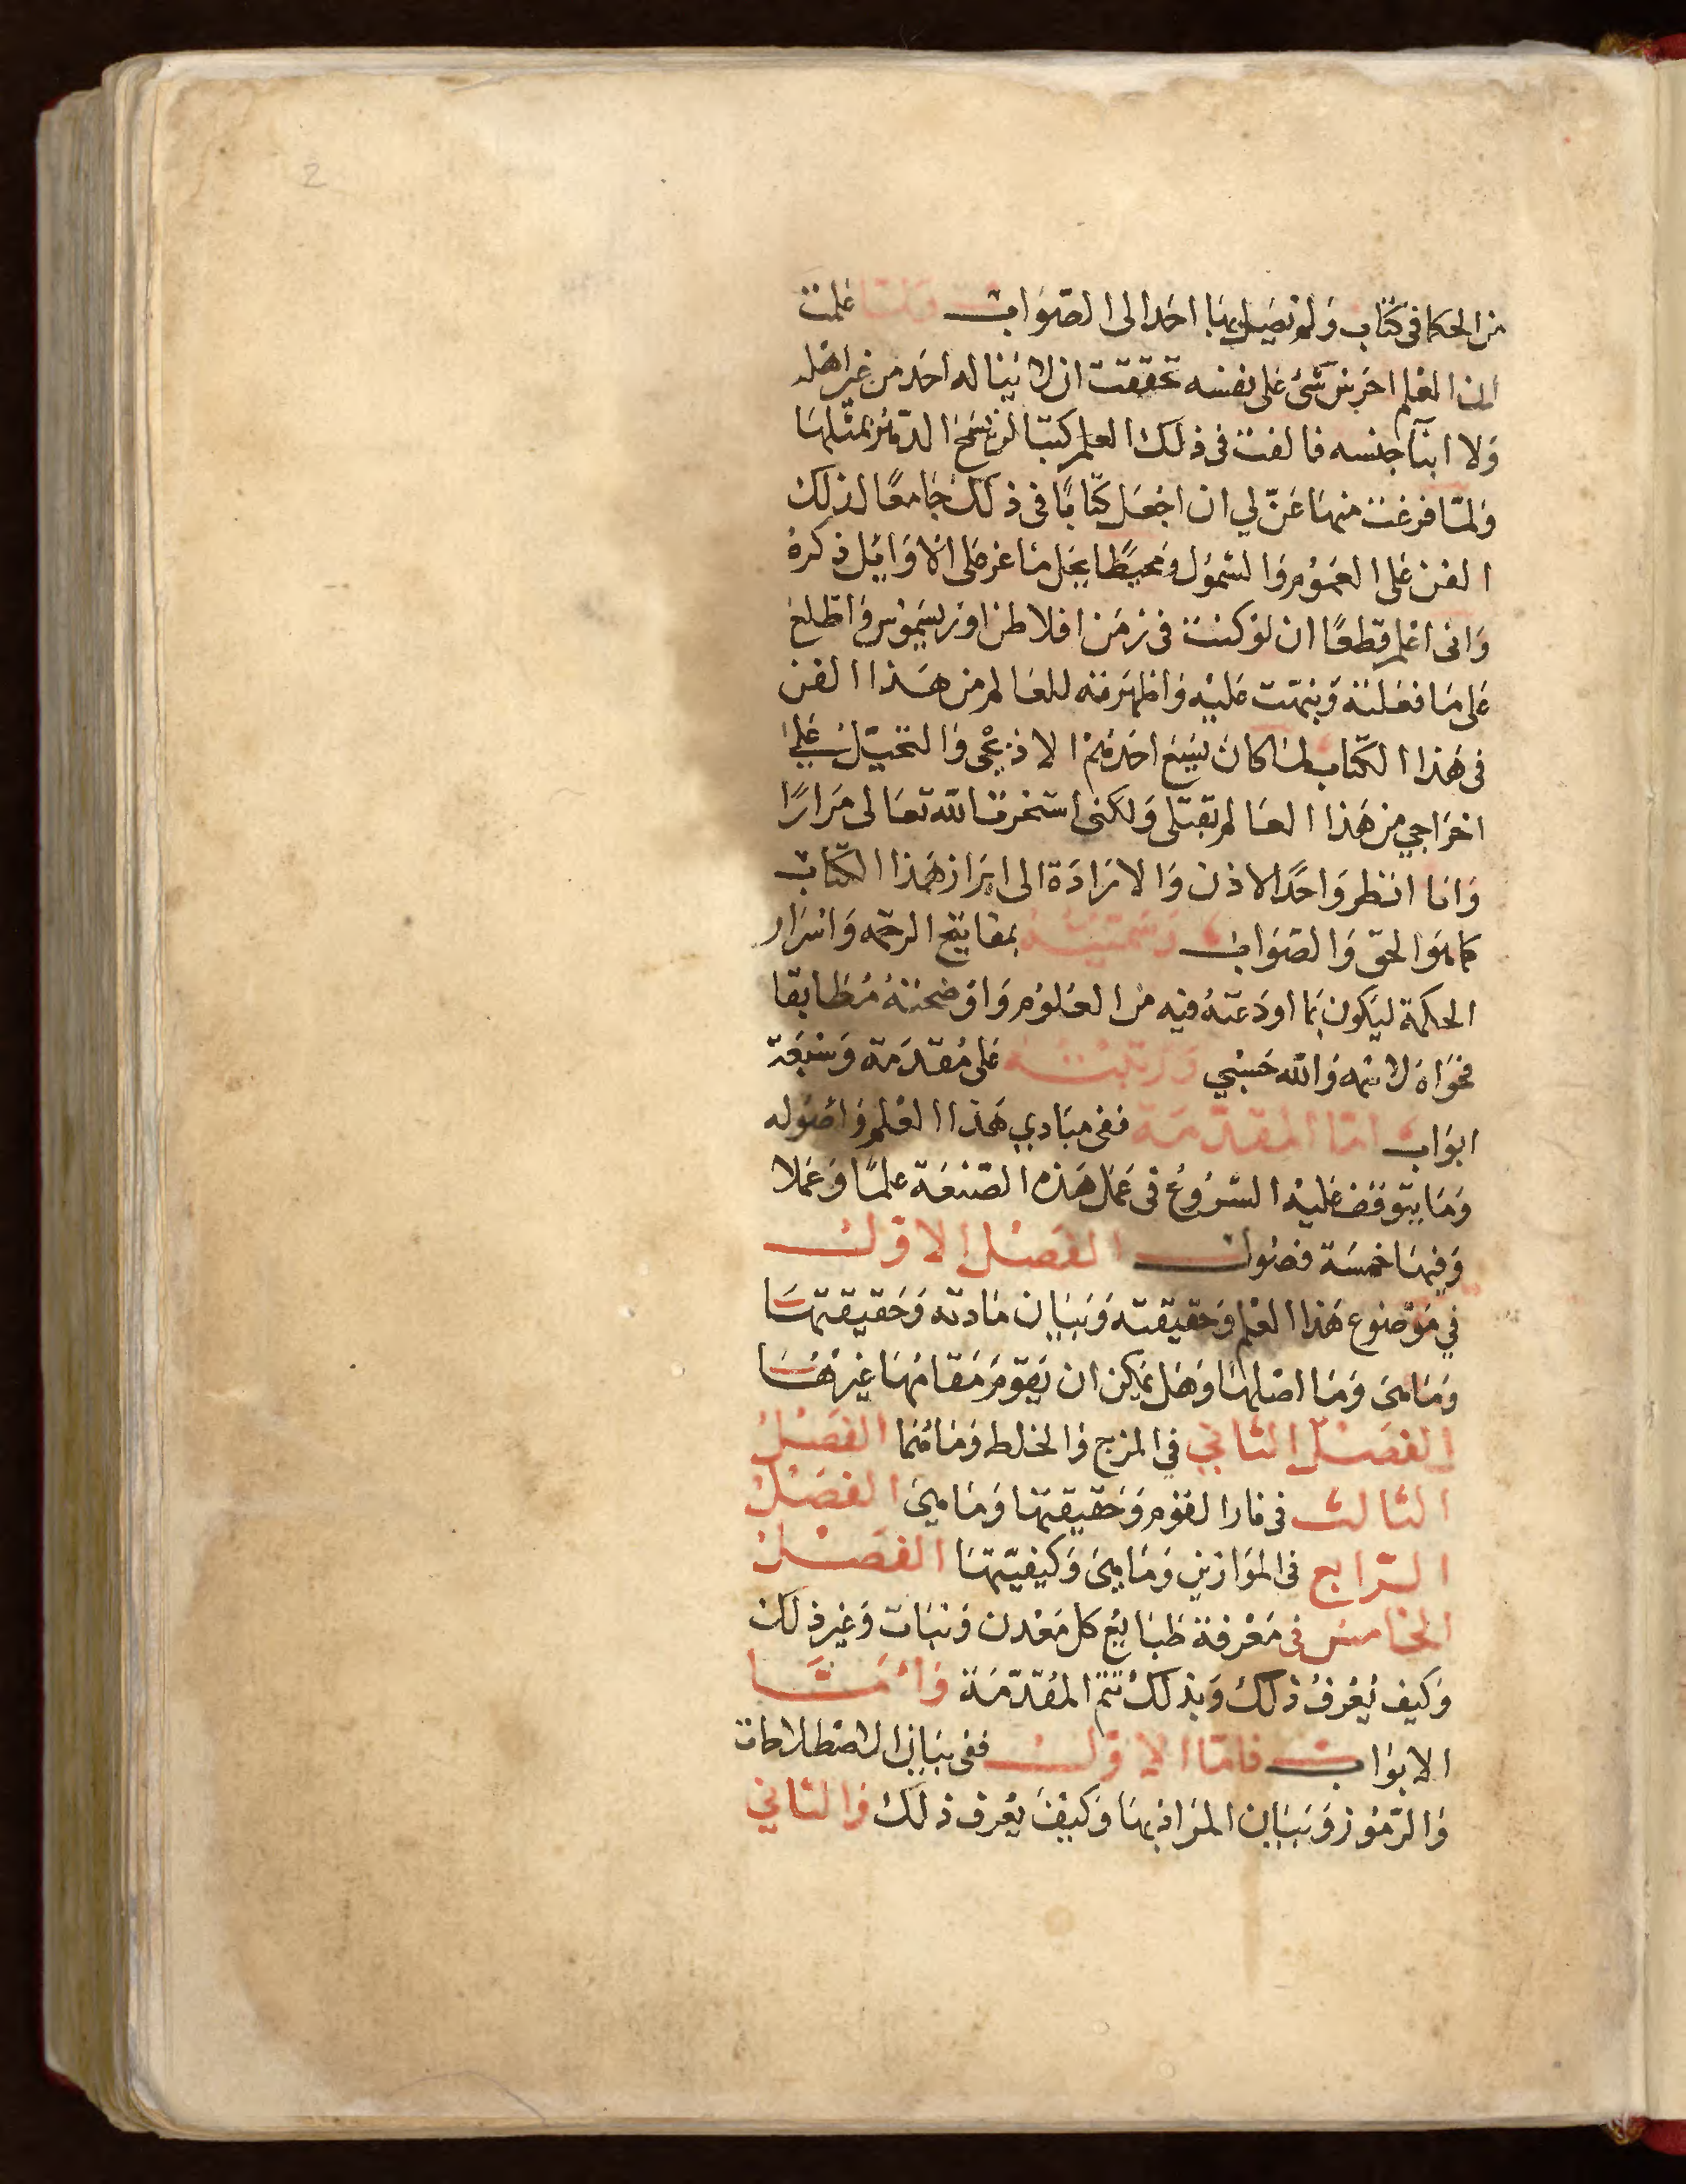 2
من الحكما فى كتاب ولم نصل بها احدا الى الصواب ولما علمت
ان العلم احرس شئ على نفسه تحققت ان لا يناله احد من غير اهله
ولا ابنآ جنسه فالفت فى ذلك العلم كتبا لم تسمح الدهر بمثلها
ولما فرغت منها عنّ لي ان اجعل كتابًا فى ذلك جامعًا لذلك
الفن على العموم والشمول ومحيطًا بحل ما عز على الاوايل ذكره
وانى اعلم قطعًا ان لو كنت فى زمن افلاطن او زسيموس واطلع
على ما فعلته ونبهت عليه واظهرته للعالم من هذا الفن
فى هذا الكتاب لما كان يسع احدهم الا ذبحى والتحيّل على
اخراجي من هذا العالم بقتلى ولكنى استخرت الله تعالى مرارًا
وانا انظر واحدًا الاذن والارادة الى ابراز هذا الكتاب
كما هو الحق والصواب وسميته بمفاتيح الرحمه واسرار
الحكمة ليكون بما اودعته فيه من العلوم واوضحته مطابقا
فحواه لاسمه والله حسبي ورتبته على مقدمة وسبعة
ابواب اما المقدمة ففى مبادي هذا العلم واصوله
وما يتوقف عليه الشروع فى عمل هذه الصنعة علمًا وعملا
وفيها خمسة فصول الفصل الاول
في موضوع هذا العلم وحقيقته وبيان مادته وحقيقتها
وما هى وما اصلها وهل يمكن ان يقوم مقامها غيرها
الفصل الثاني في المزج والخلط وما هما الفصل
الثالث فى نار القوم وحقيقتها وما هى الفصل
الرابع فى الموازين وما هى وكيفيّتها الفصل
الخامس فى معرفة طبايع كل معدن ونبات وغير ذلك
وكيف يُعرفُ ذلك وبذلك تتم المقدّمة وامّا
الابواب فامّا الاوّل ففى بيان الاصطلاحات
والرّموز وبيان المراد بها وكيف يعرف ذلك والثاني